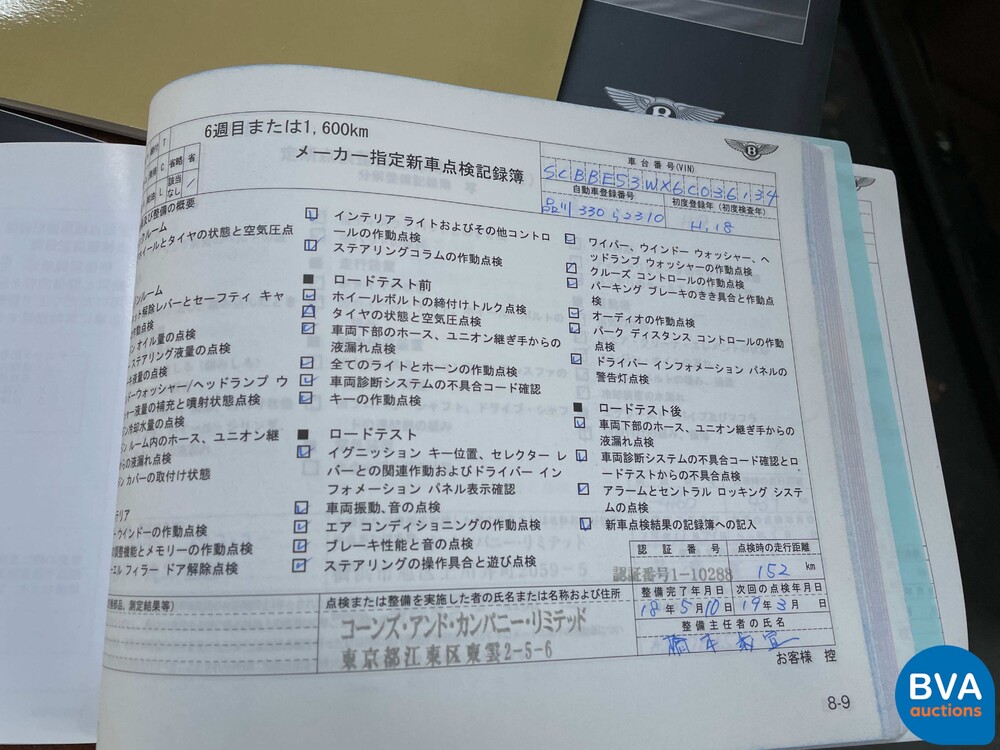 6週目または1,600km
メーカー指定新車点検記録簿
車台番号(VIN)
SCBBE53WX6C036134
自動車登録番号
初度登録年(初度検査年)
品川 330 ら 2310
H.18
省略
省
該当なし
及び整備の概要
ルーム
イールとタイヤの状態と空気圧点
ンルーム
ット解除レバーとセーフティ キャ
動点検
ン オイル量の点検
ステアリング液量の点検
キ液量の点検
ドーウォッシャー/ヘッドランプ ウ
ャー液量の補充と噴射状態点検
ン冷却水量の点検
ン ルーム内のホース、ユニオン継
らの液漏れ点検
ン カバーの取付け状態
テリア
ーウインドーの作動点検
調整機能とメモリーの作動点検
ーエル フィラー ドア解除点検
インテリア ライトおよびその他コントロ
ールの作動点検
ステアリングコラムの作動点検
■ ロードテスト前
ホイールボルトの締付けトルク点検
タイヤの状態と空気圧点検
車両下部のホース、ユニオン継ぎ手からの
液漏れ点検
全てのライトとホーンの作動点検
車両診断システムの不具合コード確認
キーの作動点検
■ ロードテスト
イグニッション キー位置、セレクター レ
バーとの関連作動およびドライバー イン
フォメーション パネル表示確認
車両振動、音の点検
エア コンディショニングの作動点検
ブレーキ性能と音の点検
ステアリングの操作具合と遊び点検
ワイパー、ウインドー ウォッシャー、ヘ
ッドランプ ウォッシャーの作動点検
クルーズ コントロールの作動点検
パーキング ブレーキのきき具合と作動点
検
オーディオの作動点検
パーク ディスタンス コントロールの作動
点検
ドライバー インフォメーション パネルの
警告灯点検
■ ロードテスト後
車両下部のホース、ユニオン継ぎ手からの
液漏れ点検
車両診断システムの不具合コード確認とロ
ードテストからの不具合点検
アラームとセントラル ロッキング システ
ムの点検
新車点検結果の記録簿への記入
認証番号
点検時の走行距離
認証番号1-10288
152 km
整備完了年月日
次回の点検年月日
18年5月10日
19年3月 日
整備主任者の氏名
部品、測定結果等)
点検または整備を実施した者の氏名または名称および住所
コーンズ・アンド・カンパニー・リミテッド
東京都江東区東雲2-5-6
お客様 控
8-9
BVA
auctions